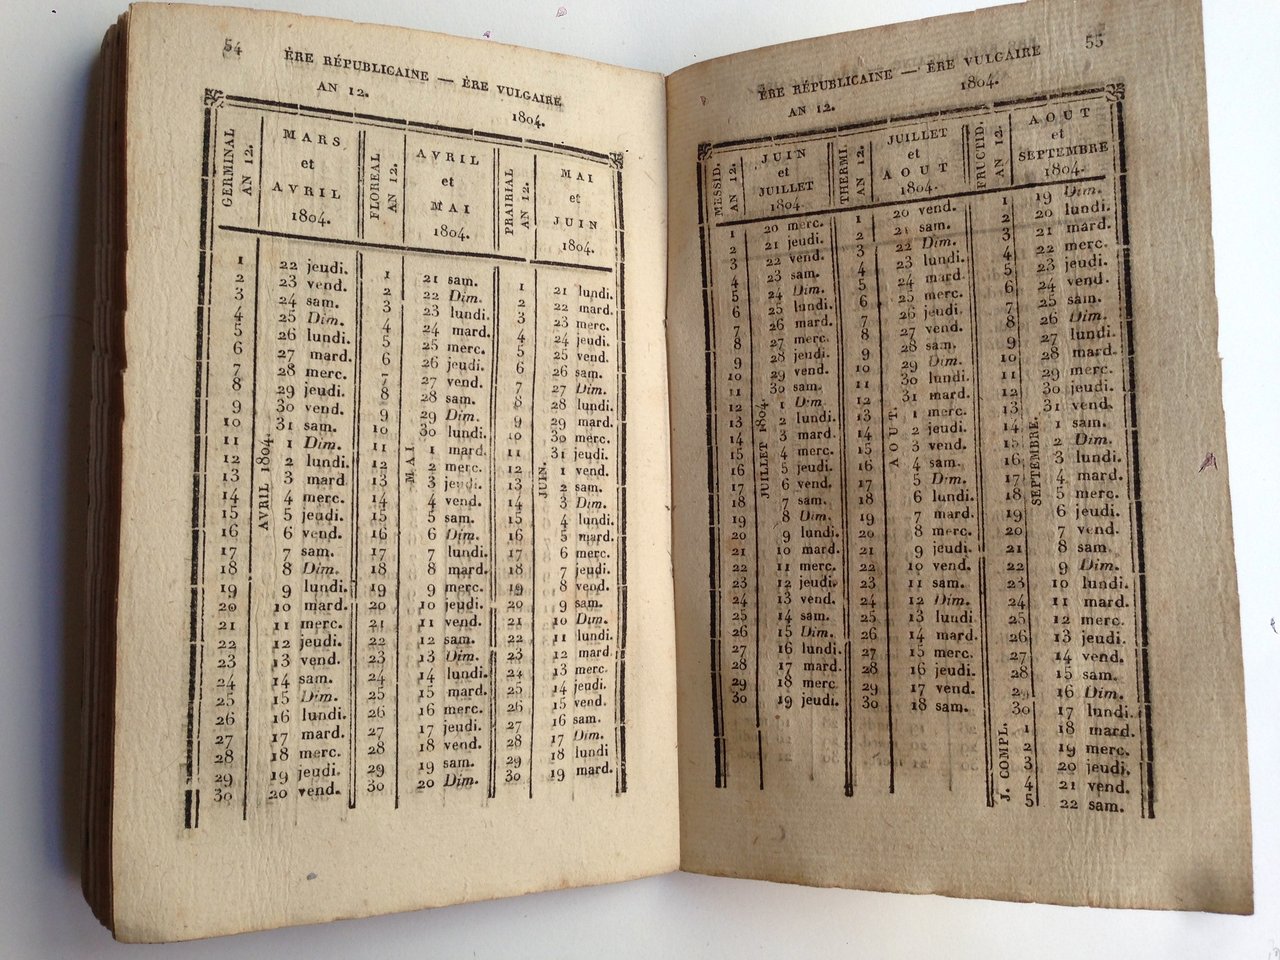 54
ÈRE RÉPUBLICAINE — ÈRE VULGAIRE
AN 12. 1804.
GERMINAL AN 12. MARS et AVRIL 1804. FLOREAL AN 12. AVRIL et MAI 1804. PRAIRIAL AN 12. MAI et JUIN 1804.
1 22 jeudi. 1 21 sam. 1 21 lundi.
2 23 vend. 2 22 Dim. 2 22 mard.
3 24 sam. 3 23 lundi. 3 23 merc.
4 25 Dim. 4 24 mard. 4 24 jeudi.
5 26 lundi. 5 25 merc. 5 25 vend.
6 27 mard. 6 26 jeudi. 6 26 sam.
7 28 merc. 7 27 vend. 7 27 Dim.
8 29 jeudi. 8 28 sam. 8 28 lundi.
9 30 vend. 9 29 Dim. 9 29 mard.
10 31 sam. 10 30 lundi. 10 30 merc.
AVRIL 1804. MAI. JUIN.
11 1 Dim. 11 1 mard. 11 31 jeudi.
12 2 lundi. 12 2 merc. 12 1 vend.
13 3 mard 13 3 jeudi. 13 2 sam.
14 4 merc. 14 4 vend. 14 3 Dim.
15 5 jeudi. 15 5 sam. 15 4 lundi.
16 6 vend. 16 6 Dim. 16 5 mard.
17 7 sam. 17 7 lundi. 17 6 merc.
18 8 Dim. 18 8 mard. 18 7 jeudi.
19 9 lundi. 19 9 merc. 19 8 vend.
20 10 mard. 20 10 jeudi. 20 9 sam.
21 11 merc. 21 11 vend. 21 10 Dim.
22 12 jeudi. 22 12 sam. 22 11 lundi.
23 13 vend. 23 13 Dim. 23 12 mard.
24 14 sam. 24 14 lundi. 24 13 merc.
25 15 Dim. 25 15 mard. 25 14 jeudi.
26 16 lundi. 26 16 merc. 26 15 vend.
27 17 mard. 27 17 jeudi. 27 16 sam.
28 18 merc. 28 18 vend. 28 17 Dim.
29 19 jeudi. 29 19 sam. 29 18 lundi
30 20 vend. 30 20 Dim. 30 19 mard.
55
ÈRE RÉPUBLICAINE — ÈRE VULGAIRE
AN 12. 1804.
MESSID. AN 12. JUIN et JUILLET 1804. THERMI. AN 12. JUILLET et AOUT 1804. FRUCTID. AN 12. AOUT et SEPTEMBRE 1804.
1 20 merc. 1 20 vend. 1 19 Dim.
2 21 jeudi. 2 21 sam. 2 20 lundi.
3 22 vend. 3 22 Dim. 3 21 mard.
4 23 sam. 4 23 lundi. 4 22 merc.
5 24 Dim. 5 24 mard. 5 23 jeudi.
6 25 lundi. 6 25 merc. 6 24 vend.
7 26 mard. 7 26 jeudi. 7 25 sam.
8 27 merc. 8 27 vend. 8 26 Dim.
9 28 jeudi. 9 28 sam. 9 27 lundi.
10 29 vend. 10 29 Dim. 10 28 mard.
11 30 sam. 11 30 lundi. 11 29 merc.
JUILLET 1804. AOUT. SEPTEMBRE.
12 1 Dim 12 31 mard. 12 30 jeudi.
13 2 lundi. 13 1 merc. 13 31 vend.
14 3 mard. 14 2 jeudi. 14 1 sam.
15 4 merc. 15 3 vend. 15 2 Dim.
16 5 jeudi. 16 4 sam. 16 3 lundi.
17 6 vend. 17 5 Dim. 17 4 mard.
18 7 sam. 18 6 lundi. 18 5 merc.
19 8 Dim. 19 7 mard. 19 6 jeudi.
20 9 lundi. 20 8 merc. 20 7 vend.
21 10 mard. 21 9 jeudi. 21 8 sam.
22 11 merc. 22 10 vend. 22 9 Dim.
23 12 jeudi. 23 11 sam. 23 10 lundi.
24 13 vend. 24 12 Dim. 24 11 mard.
25 14 sam. 25 13 lundi 25 12 merc.
26 15 Dim. 26 14 mard. 26 13 jeudi.
27 16 lundi. 27 15 merc. 27 14 vend.
28 17 mard. 28 16 jeudi. 28 15 sam.
29 18 merc 29 17 vend. 29 16 Dim.
30 19 jeudi. 30 18 sam. 30 17 lundi.
J. COMPL.
1 18 mard.
2 19 merc.
3 20 jeudi.
4 21 vend.
5 22 sam.